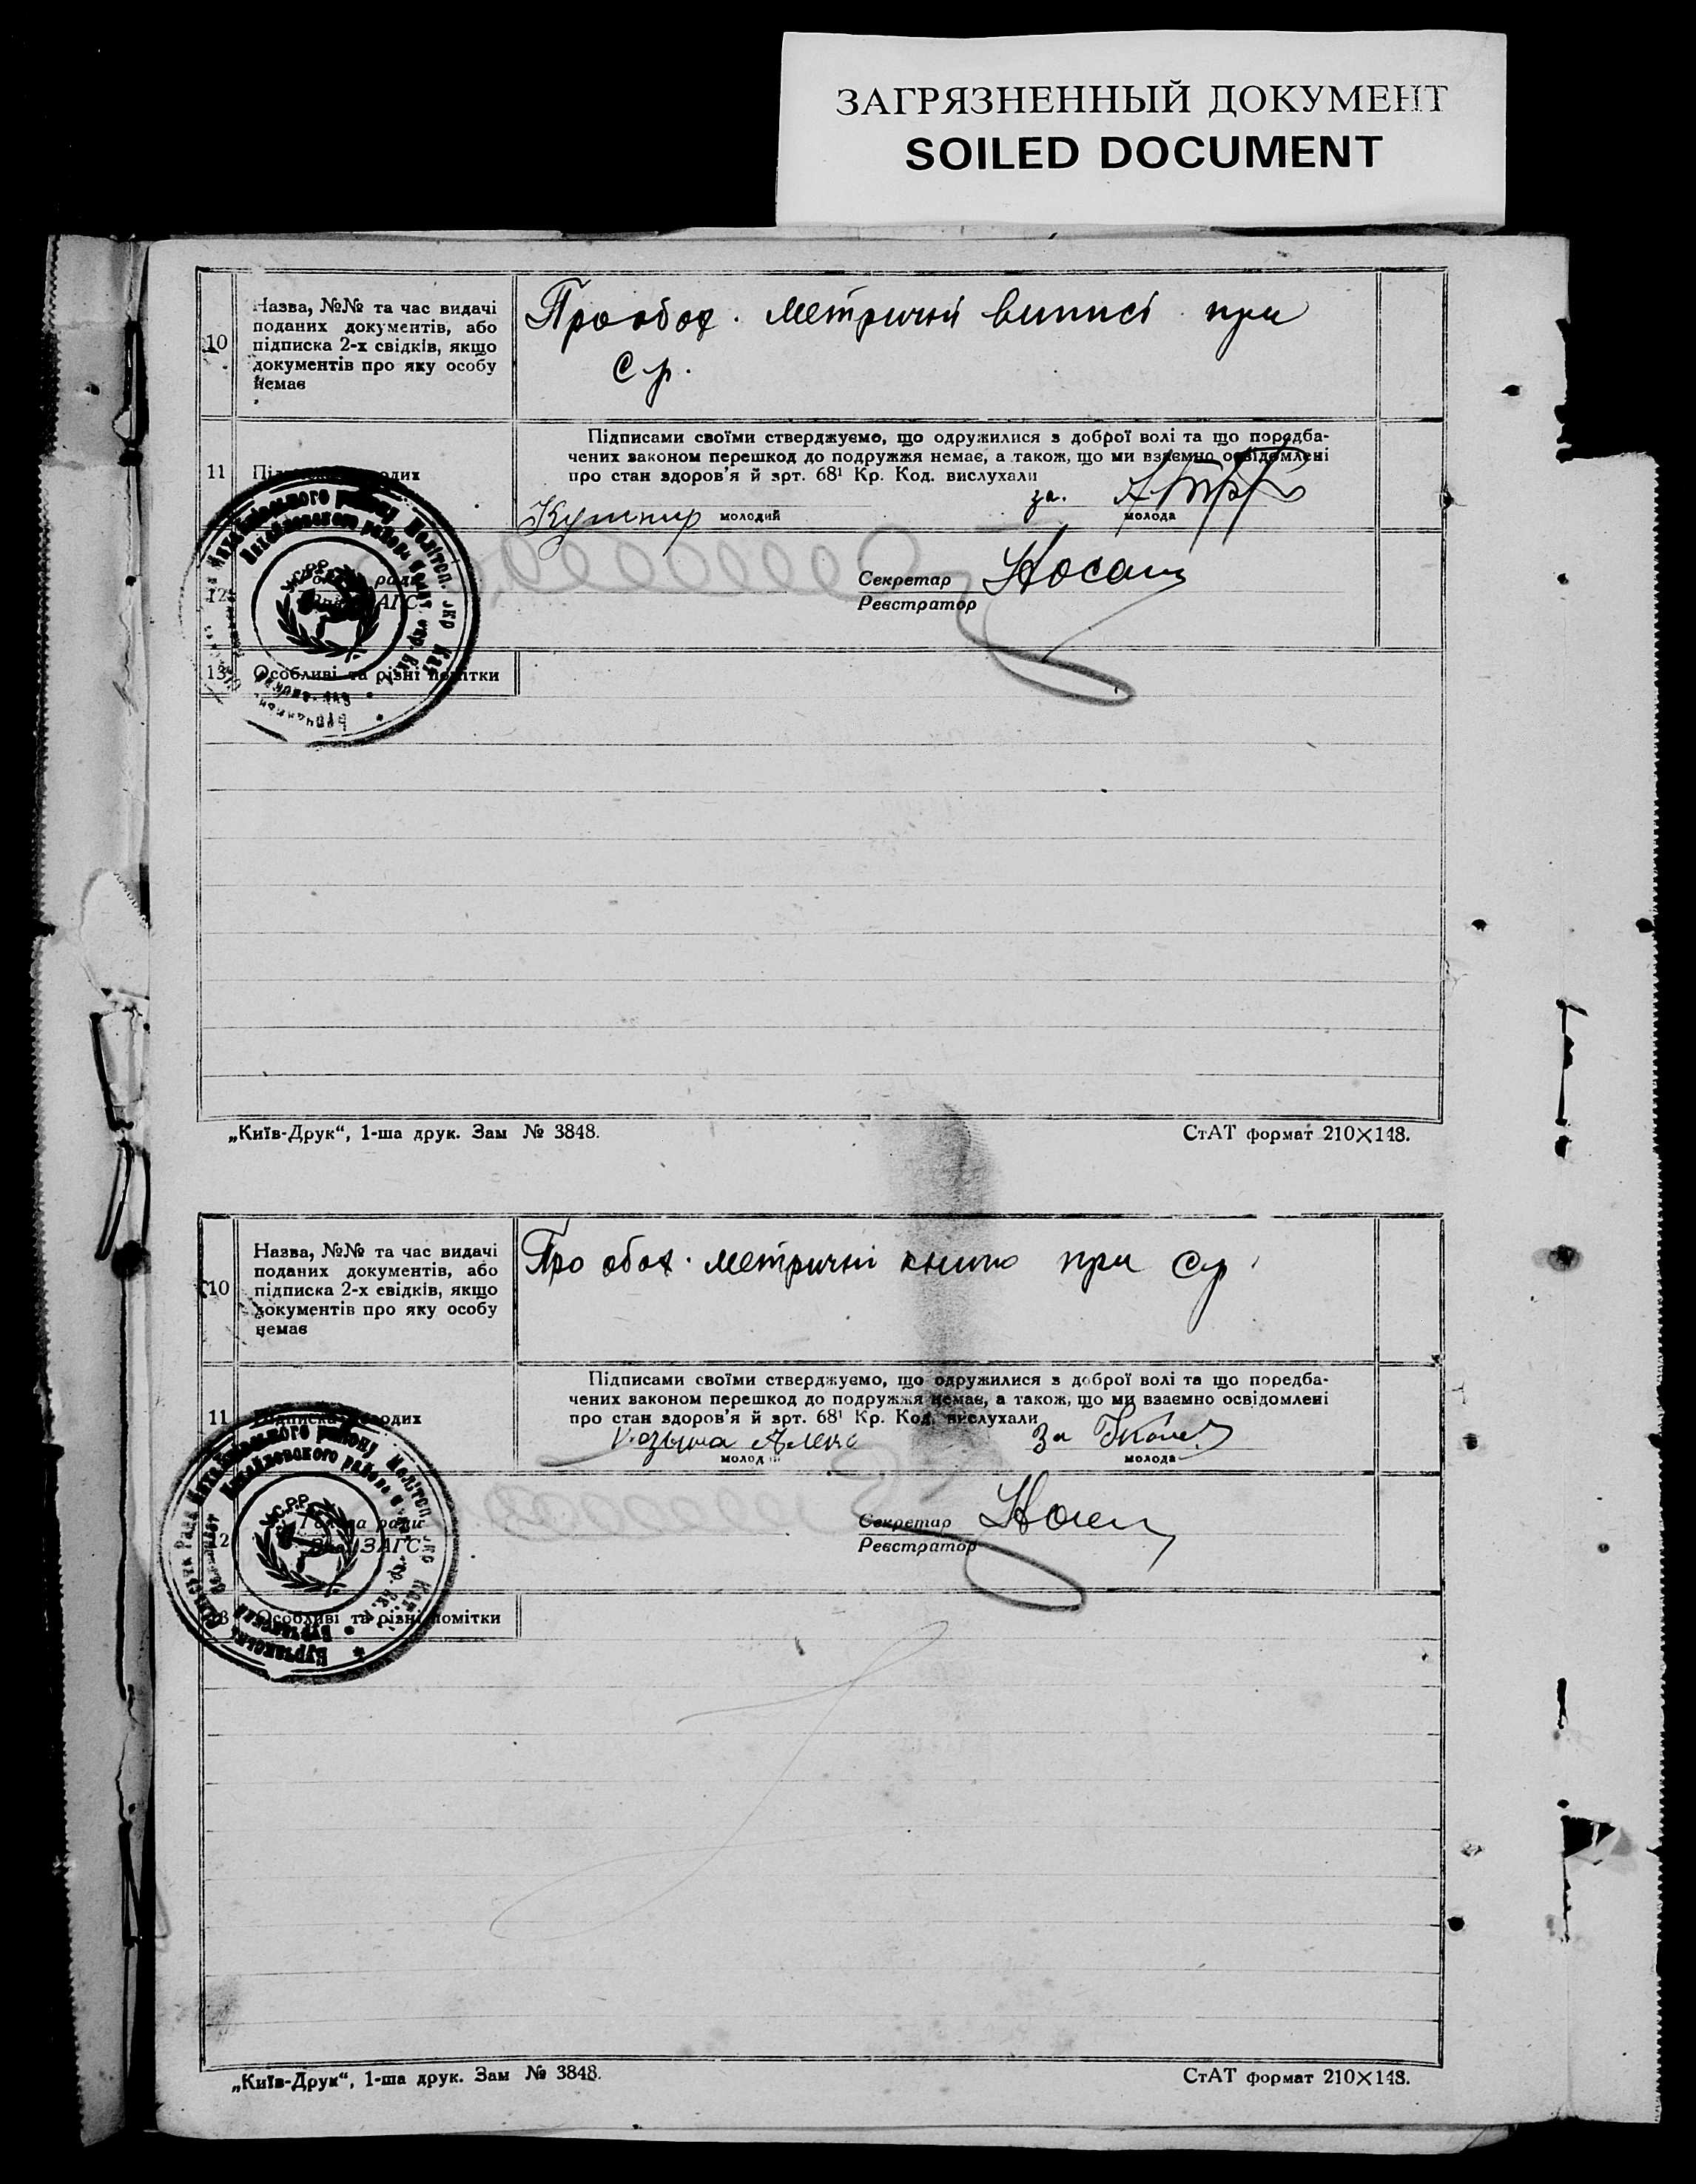 ЗАГРЯЗНЕННЫЙ ДОКУМЕНТ
SOILED DOCUMENT
10
Назва, №№ та час видачі
поданих документів, або
підписка 2-х свідків, якщо
документів про яку особу
немає
Про обох. метричні виписі при
с р.
11
Підписами своїми стверджуємо, що одружилися з доброї волі та що поредба-
чених законом перешкод до подружжя немає, а також, що ми взаємно освідомлені
про стан здоров'я й арт. 68¹ Кр. Код. вислухали
Кушнир молодий
за.
молода
12
ради
ЗАГС
Секретар Носань
Реєстратор
13 Особливі та різні помітки
„Київ-Друк“, 1-ша друк. Зам № 3848.
СтАТ формат 210×148.
10
Назва, №№ та час видачі
поданих документів, або
підписка 2-х свідків, якщо
документів про яку особу
немає
Про обох. метричні при ср
11
Підписка молодих
Підписами своїми стверджуємо, що одружилися з доброї волі та що поредба-
чених законом перешкод до подружжя немає, а також, що ми взаємно освідомлені
про стан здоров'я й арт. 68¹ Кр. Код. вислухали
За
молодий
молода
12
Голова ради
ЗАГС
Секретар
Реєстратор
13 Особливі та різні помітки
„Київ-Друк“, 1-ша друк. Зам № 3848.
СтАТ формат 210×148.